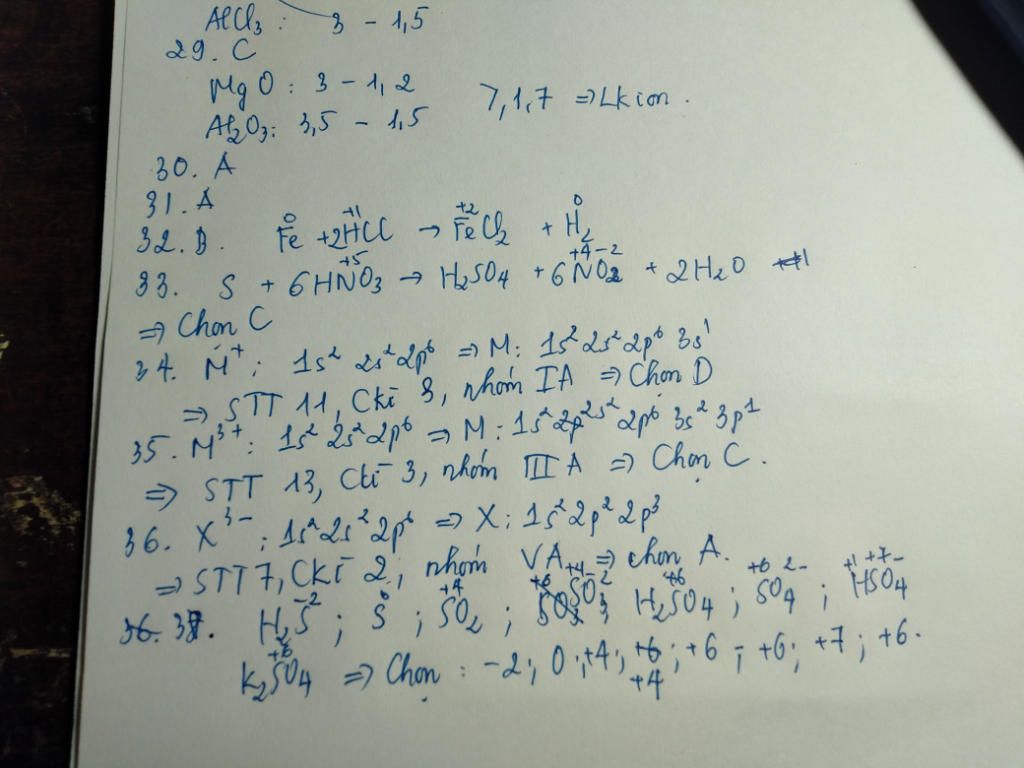 AlCl₃ : 3 - 1,5
29. C
MgO : 3 - 1,2
7,1,7 ⇒ Lk ion .
Al₂O₃ : 3,5 - 1,5
30. A
31. A
32. B. Fe⁰ + 2H⁺¹Cl → Fe⁺²Cl₂ + H₂⁰
33. S + 6HN⁺⁵O₃ → H₂SO₄ + 6N⁺⁴O₂⁻² + 2H₂O
⇒ Chọn C
34. M⁺ : 1s² 2s² 2p⁶ ⇒ M : 1s² 2s² 2p⁶ 3s¹
⇒ STT 11, Ckì 3, nhóm IA ⇒ Chọn D
35. M³⁺ : 1s² 2s² 2p⁶ ⇒ M : 1s² 2p² 2s² 2p⁶ 3s² 3p¹
⇒ STT 13, Ckì 3, nhóm III A ⇒ Chọn C .
36. X³⁻ : 1s² 2s² 2p⁶ ⇒ X : 1s² 2p² 2p³
⇒ STT 7, Ckì 2, nhóm VA ⇒ chọn A.
36. 37. H₂S⁻² ; S⁰ ; S⁺⁴O₂ ; S⁺⁶O₃ S⁺⁴O₃²⁻ ; H₂S⁺⁶O₄ ; S⁺⁶O₄²⁻ ; H⁺¹S⁺⁷O₄⁻
K₂S⁺⁶O₄ ⇒ Chọn : -2 ; 0 ; +4 ; +6 ; +6 ; +6 ; +7 ; +6.
+4